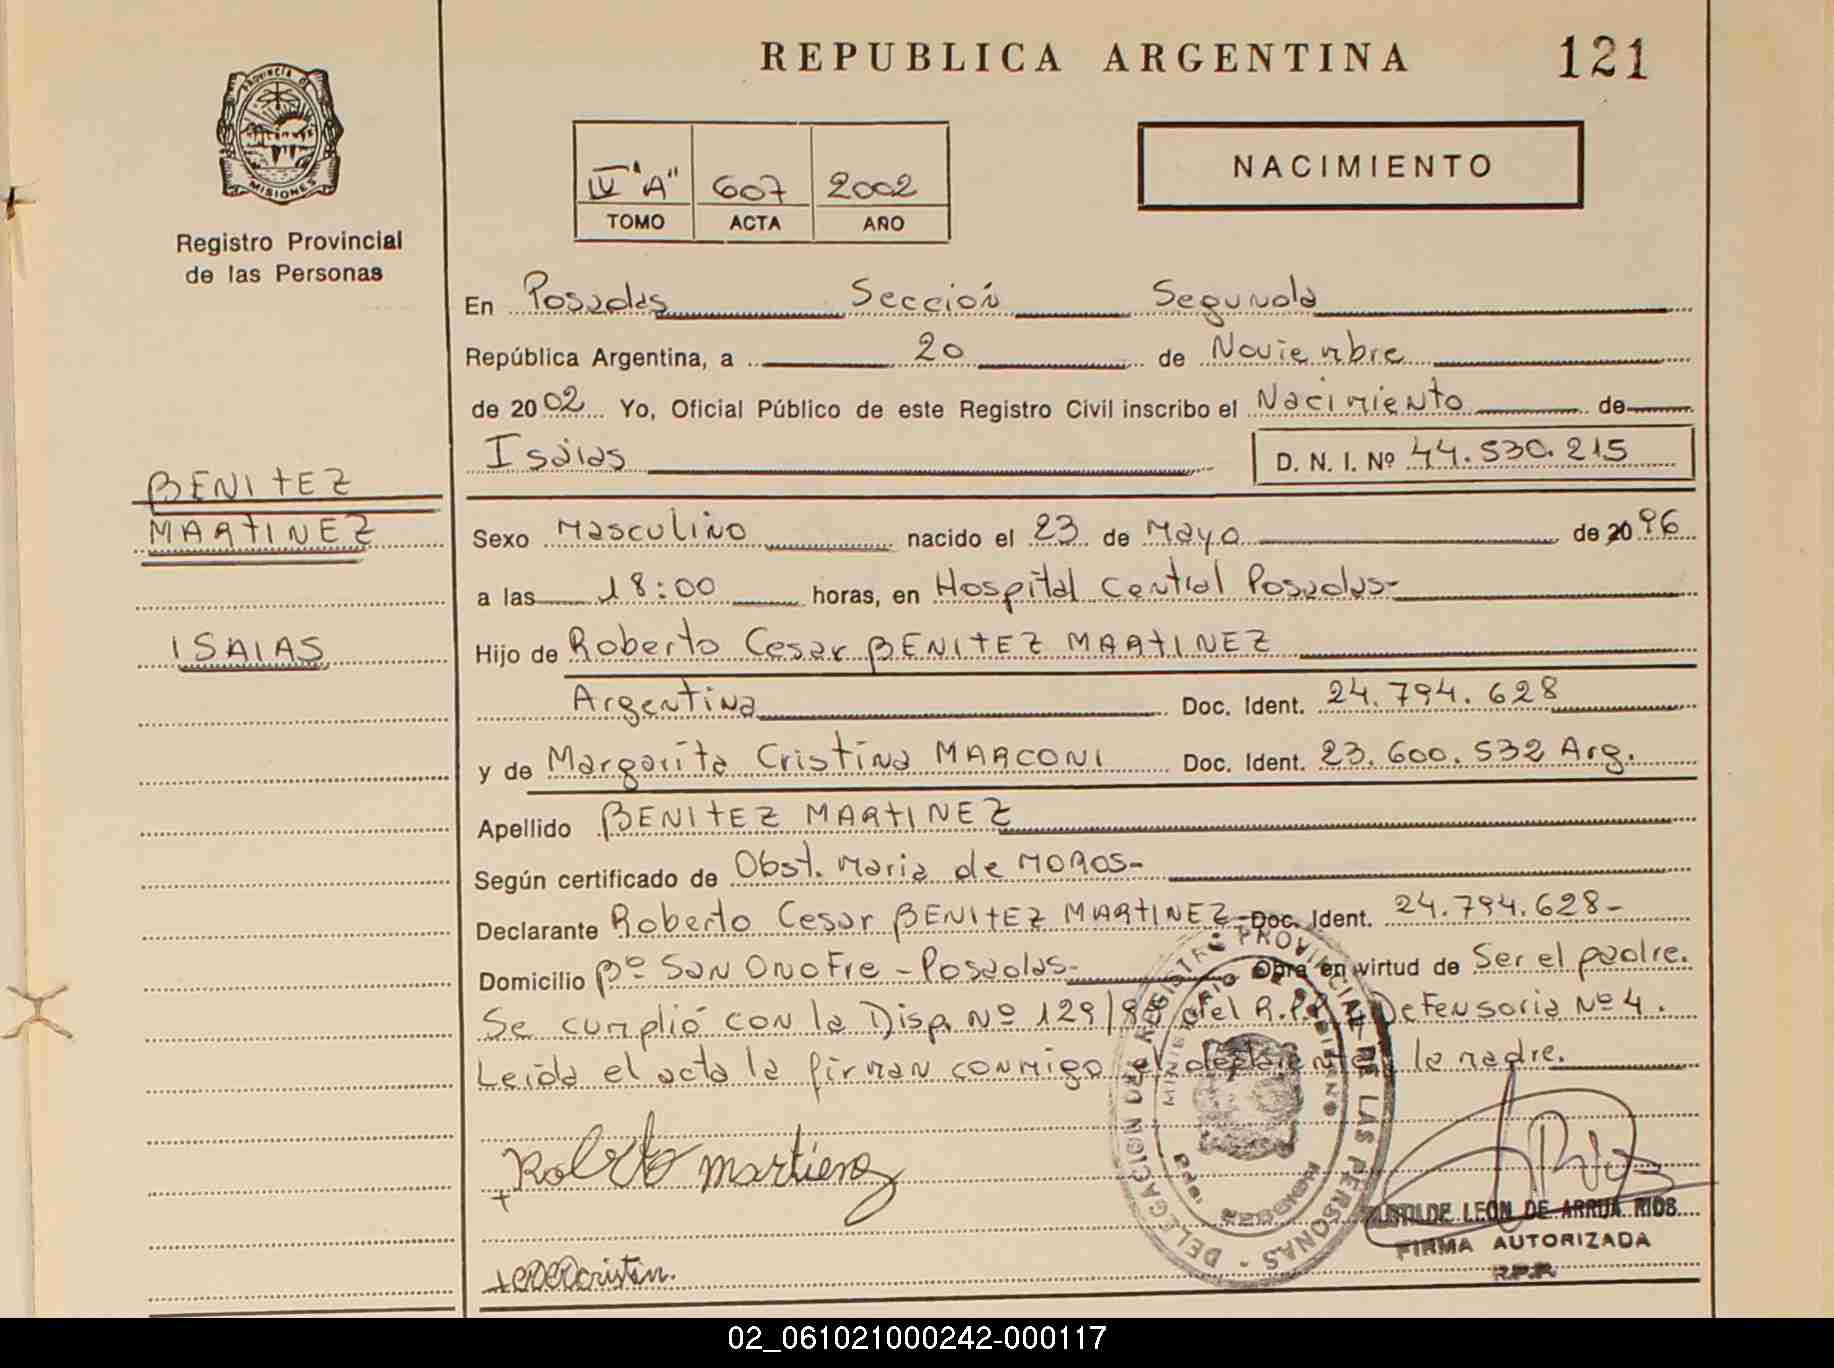 REPUBLICA ARGENTINA
121
PROVINCIA DE
MISIONES
Registro Provincial
de las Personas
IV "A" 607 2002
TOMO ACTA AÑO
NACIMIENTO
En Posadas Sección Segunda
República Argentina, a 20 de Noviembre
de 2002 Yo, Oficial Público de este Registro Civil inscribo el Nacimiento de
Isaias D. N. I. Nº 44.530.215
BENITEZ
MARTINEZ
ISAIAS
Sexo Masculino nacido el 23 de Mayo de 20 96
a las 18:00 horas, en Hospital Central Posadas-
Hijo de Roberto Cesar BENITEZ MARTINEZ
Argentina Doc. Ident. 24.794.628
y de Margarita Cristina MARCONI Doc. Ident. 23.600.532 Arg.
Apellido BENITEZ MARTINEZ
Según certificado de Obst. Maria de MOROS-
Declarante Roberto Cesar BENITEZ MARTINEZ- Doc. Ident. 24.794.628-
Domicilio Bº San Onofre - Posadas- Obra en virtud de Ser el padre.
Se cumplió con la Disp. Nº 129/ del R.P.P. Defensoria Nº 4.
Leida el acta la firman conmigo el la madre.
Roberto
DELEGACION DEL REGISTRO PROVINCIAL DE LAS PERSONAS
MINISTERIO DE GOBIERNO
LEON DE ARRUA RIOS
FIRMA AUTORIZADA
R.P.P.
02_061021000242-000117